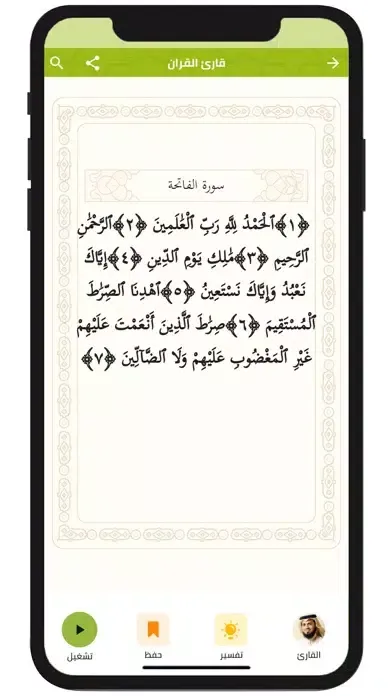 قارئ القران
سورة الفاتحة
﴿١﴾ٱلْحَمْدُ لِلَّهِ رَبِّ ٱلْعَٰلَمِينَ ﴿٢﴾ٱلرَّحْمَٰنِ
ٱلرَّحِيمِ ﴿٣﴾مَٰلِكِ يَوْمِ ٱلدِّينِ ﴿٤﴾إِيَّاكَ
نَعْبُدُ وَإِيَّاكَ نَسْتَعِينُ ﴿٥﴾ٱهْدِنَا ٱلصِّرَٰطَ
ٱلْمُسْتَقِيمَ ﴿٦﴾صِرَٰطَ ٱلَّذِينَ أَنْعَمْتَ عَلَيْهِمْ
غَيْرِ ٱلْمَغْضُوبِ عَلَيْهِمْ وَلَا ٱلضَّآلِّينَ ﴿٧﴾
القارئ
تفسير
حفظ
تشغيل